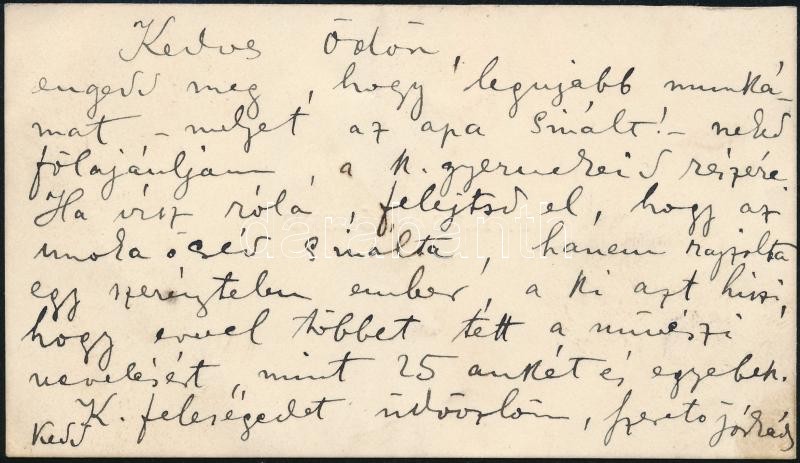 Kedves Ödön,
engedd meg, hogy legujabb munká-
mat – melyet az apa csinált! – neked
fölajánljam, a k. gyermekeid részére.
Ha írsz róla, felejtsd el, hogy az
unoka öcséd csinálta, hanem rajzolta
egy szerénytelen ember, a ki azt hiszi,
hogy evvel többet tett a művészi
nevelésért, mint 25 ankét és egyebek.
K. feleségedet üdvözlöm, szerető
Kedd
darabanth